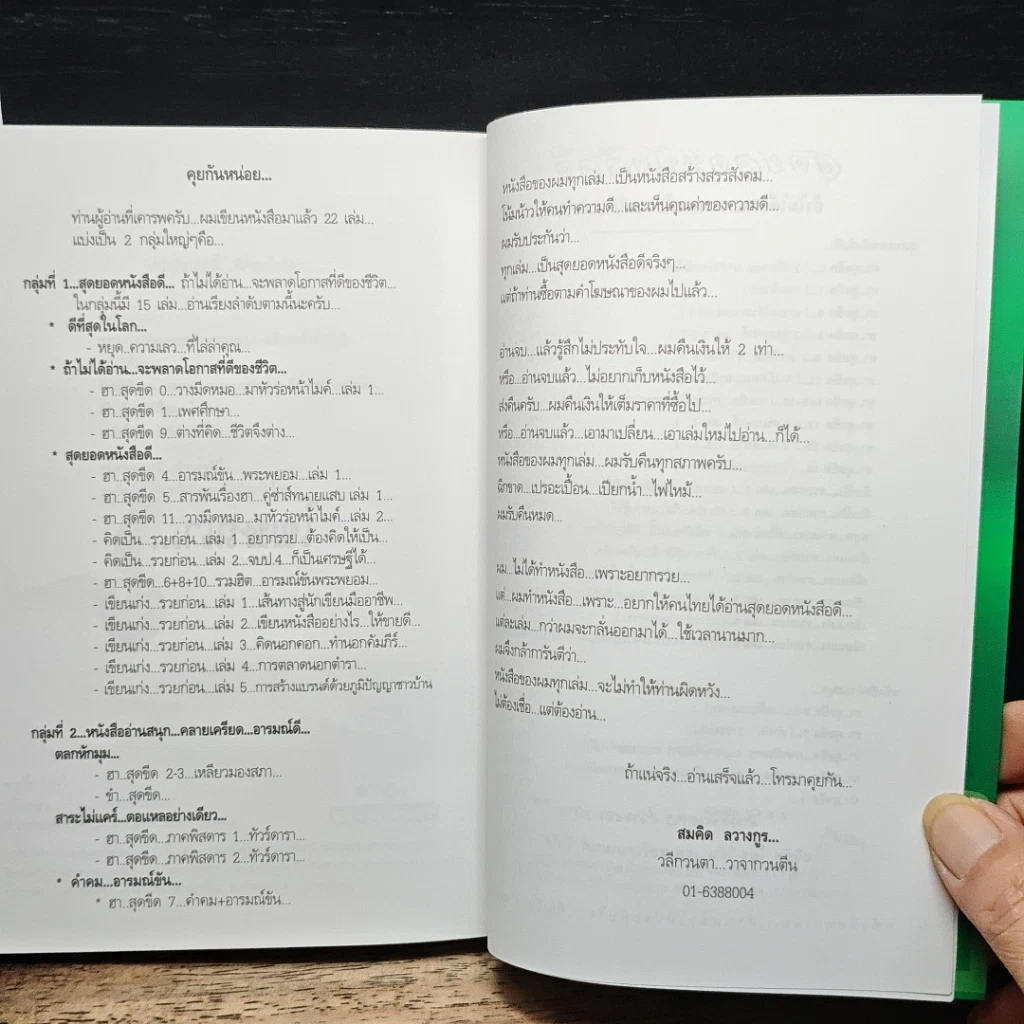 คุยกันหน่อย...
ท่านผู้อ่านที่เคารพครับ...ผมเขียนหนังสือมาแล้ว 22 เล่ม...
แบ่งเป็น 2 กลุ่มใหญ่ๆคือ...
กลุ่มที่ 1...สุดยอดหนังสือดี... ถ้าไม่ได้อ่าน...จะพลาดโอกาสที่ดีของชีวิต...
ในกลุ่มนี้มี 15 เล่ม...อ่านเรียงลำดับตามนี้นะครับ...
* ดีที่สุดในโลก...
- หยุด..ความเลว...ที่ไล่ล่าคุณ...
* ถ้าไม่ได้อ่าน...จะพลาดโอกาสที่ดีของชีวิต...
- ฮา..สุดขีด 0...วางมีดหมอ...มาหัวร่อหน้าไมค์...เล่ม 1...
- ฮา..สุดขีด 1...เพศศึกษา...
- ฮา..สุดขีด 9...ต่างที่คิด...ชีวิตจึงต่าง...
* สุดยอดหนังสือดี...
- ฮา..สุดขีด 4...อารมณ์ขัน...พระพยอม...เล่ม 1...
- ฮา..สุดขีด 5...สารพันเรื่องฮา...คู่ซ่าส์ทนายแสบ เล่ม 1...
- ฮา..สุดขีด 11...วางมีดหมอ...มาหัวร่อหน้าไมค์...เล่ม 2...
- คิดเป็น...รวยก่อน...เล่ม 1...อยากรวย...ต้องคิดให้เป็น...
- คิดเป็น...รวยก่อน...เล่ม 2...จบป.4...ก็เป็นเศรษฐีได้...
- ฮา..สุดขีด...6+8+10...รวมฮิต...อารมณ์ขันพระพยอม...
- เขียนเก่ง...รวยก่อน...เล่ม 1...เส้นทางสู่นักเขียนมืออาชีพ...
- เขียนเก่ง...รวยก่อน...เล่ม 2...เขียนหนังสืออย่างไร...ให้ขายดี...
- เขียนเก่ง...รวยก่อน...เล่ม 3...คิดนอกคอก...ทำนอกคัมภีร์...
- เขียนเก่ง...รวยก่อน...เล่ม 4...การตลาดนอกตำรา...
- เขียนเก่ง...รวยก่อน...เล่ม 5...การสร้างแบรนด์ด้วยภูมิปัญญาชาวบ้าน
กลุ่มที่ 2...หนังสืออ่านสนุก...คลายเครียด...อารมณ์ดี...
ตลกหักมุม...
- ฮา..สุดขีด 2-3...เหลียวมองสภา...
- ขำ...สุดขีด...
สาระไม่แคร์...ตอแหลอย่างเดียว...
- ฮา..สุดขีด...ภาคพิสดาร 1...ทัวร์ดารา...
- ฮา..สุดขีด...ภาคพิสดาร 2...ทัวร์ดารา...
* คำคม...อารมณ์ขัน...
* ฮา..สุดขีด 7...คำคม+อารมณ์ขัน...
หนังสือของผมทุกเล่ม...เป็นหนังสือสร้างสรรสังคม...
โน้มน้าวให้คนทำความดี...และเห็นคุณค่าของความดี...
ผมรับประกันว่า...
ทุกเล่ม...เป็นสุดยอดหนังสือดีจริงๆ...
แต่ถ้าท่านซื้อตามคำโฆษณาของผมไปแล้ว...
อ่านจบ...แล้วรู้สึกไม่ประทับใจ...ผมคืนเงินให้ 2 เท่า...
หรือ...อ่านจบแล้ว...ไม่อยากเก็บหนังสือไว้...
ส่งคืนครับ...ผมคืนเงินให้เต็มราคาที่ซื้อไป...
หรือ...อ่านจบแล้ว...เอามาเปลี่ยน...เอาเล่มใหม่ไปอ่าน...ก็ได้...
หนังสือของผมทุกเล่ม...ผมรับคืนทุกสภาพครับ...
ฉีกขาด...เปรอะเปื้อน...เปียกน้ำ...ไฟไหม้...
ผมรับคืนหมด...
ผม...ไม่ได้ทำหนังสือ...เพราะอยากรวย...
แต่...ผมทำหนังสือ...เพราะ...อยากให้คนไทยได้อ่านสุดยอดหนังสือดี...
แต่ละเล่ม...กว่าผมจะกลั่นออกมาได้...ใช้เวลานานมาก...
ผมจึงกล้าการันตีว่า...
หนังสือของผมทุกเล่ม...จะไม่ทำให้ท่านผิดหวัง...
ไม่ต้องเชื่อ...แต่ต้องอ่าน...
ถ้าแน่จริง...อ่านเสร็จแล้ว...โทรมาคุยกัน...
สมคิด ลวางกูร...
วลีกวนตา...วาจากวนตีน
01-6388004